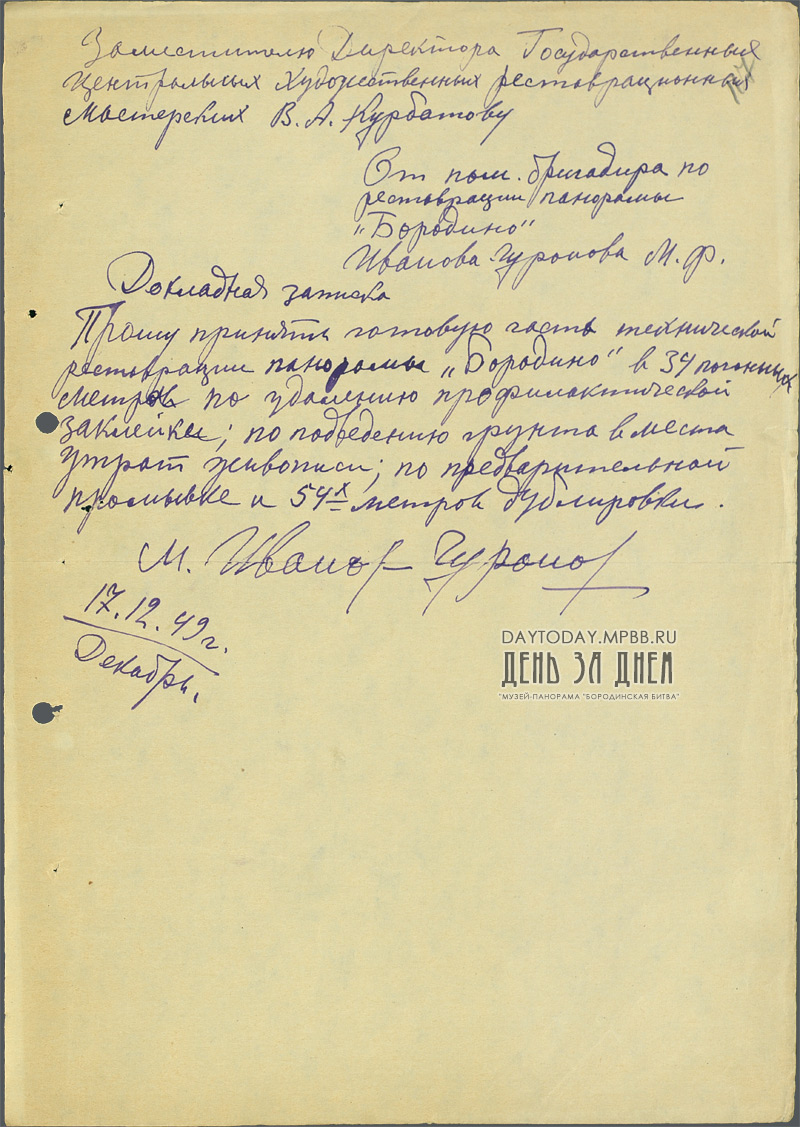 Заместителю Директора Государственных
Центральных Художественных реставрационных
Мастерских В. А. Курбатову
От пом. бригадира по
реставрации панорамы
"Бородино"
Иванова-Чуронова М. Ф.
Докладная записка
Прошу принять готовую часть технической
реставрации панорамы „Бородино" в 34 погонных
метров по удалению профилактической
заклейки; по подведению грунта в места
утрат живописи; по предварительной
промывке и 54х метров дублировки.
М. Иванов-Чуронов
17.12.49 г.
Декабрь.
DAYTODAY.MPBB.RU
ДЕНЬ ЗА ДНЕМ
"МУЗЕЙ-ПАНОРАМА "БОРОДИНСКАЯ БИТВА"